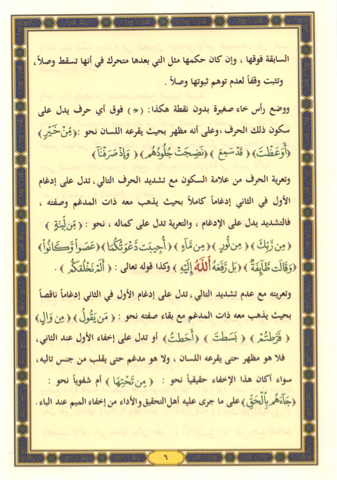 السابقة فوقها ، وإن كان حكمها مثل التي بعدها متحرك في أنها تسقط وصلاً ،
وتثبت وقفاً لعدم توهم ثبوتها وصلاً .
ووضع رأس خاء صغيرة بدون نقطة هكذا : ( ح ) فوق أي حرف يدل على
سكون ذلك الحرف ، وعلى أنه مظهر بحيث يقرعه اللسان نحو : ﴿ مِنْ خَيْرٍ ﴾
﴿ أَوَعَظْتَ ﴾ ﴿ قَدْ سَمِعَ ﴾ ﴿ نَضِجَتْ جُلُودُهُم ﴾ ﴿ وَإِذْ صَرَفْنَآ ﴾
وتعرية الحرف من علامة السكون مع تشديد الحرف التالي ، تدل على إدغام
الأول في الثاني إدغاماً كاملاً بحيث يذهب معه ذات المدغم وصفته ،
فالتشديد يدل على الإدغام ، والتعرية تدل على كماله ، نحو : ﴿ مِّن لِّينَةٍ ﴾
﴿ مِّن رَّبِّكَ ﴾ ﴿ مِن نُّورٍ ﴾ ﴿ مِّن مَّآءٍ ﴾ ﴿ أُجِيبَت دَّعْوَتُكُمَا ﴾ ﴿ عَصَوا وَّكَانُوا ﴾
﴿ وَقَالَت طَّآئِفَةٌ ﴾ ﴿ بَل رَّفَعَهُ ٱللَّهُ إِلَيْهِ ﴾ وكذا قوله تعالى : ﴿ أَلَمْ نَخْلُقكُّم ﴾ .
وتعريته مع عدم تشديد التالي ، تدل على إدغام الأول في الثاني إدغاماً ناقصاً
بحيث يذهب معه ذات المدغم مع بقاء صفته نحو : ﴿ مَن يَقُولُ ﴾ ﴿ مِن وَالٍ ﴾
﴿ فَرَّطتُمْ ﴾ ﴿ بَسَطتَ ﴾ ﴿ أَحَطتُ ﴾ أو تدل على إخفاء الأول عند الثاني ،
فلا هو مظهر حتى يقرعه اللسان ، ولا هو مدغم حتى يقلب من جنس تاليه ،
سواء أكان هذا الإخفاء حقيقياً نحو : ﴿ مِن تَحْتِهَا ﴾ أم شفوياً نحو :
﴿ جَآءَهُم بِالْحَقِّ ﴾ على ما جرى عليه أهل التحقيق والأداء من إخفاء الميم عند الباء .
٦